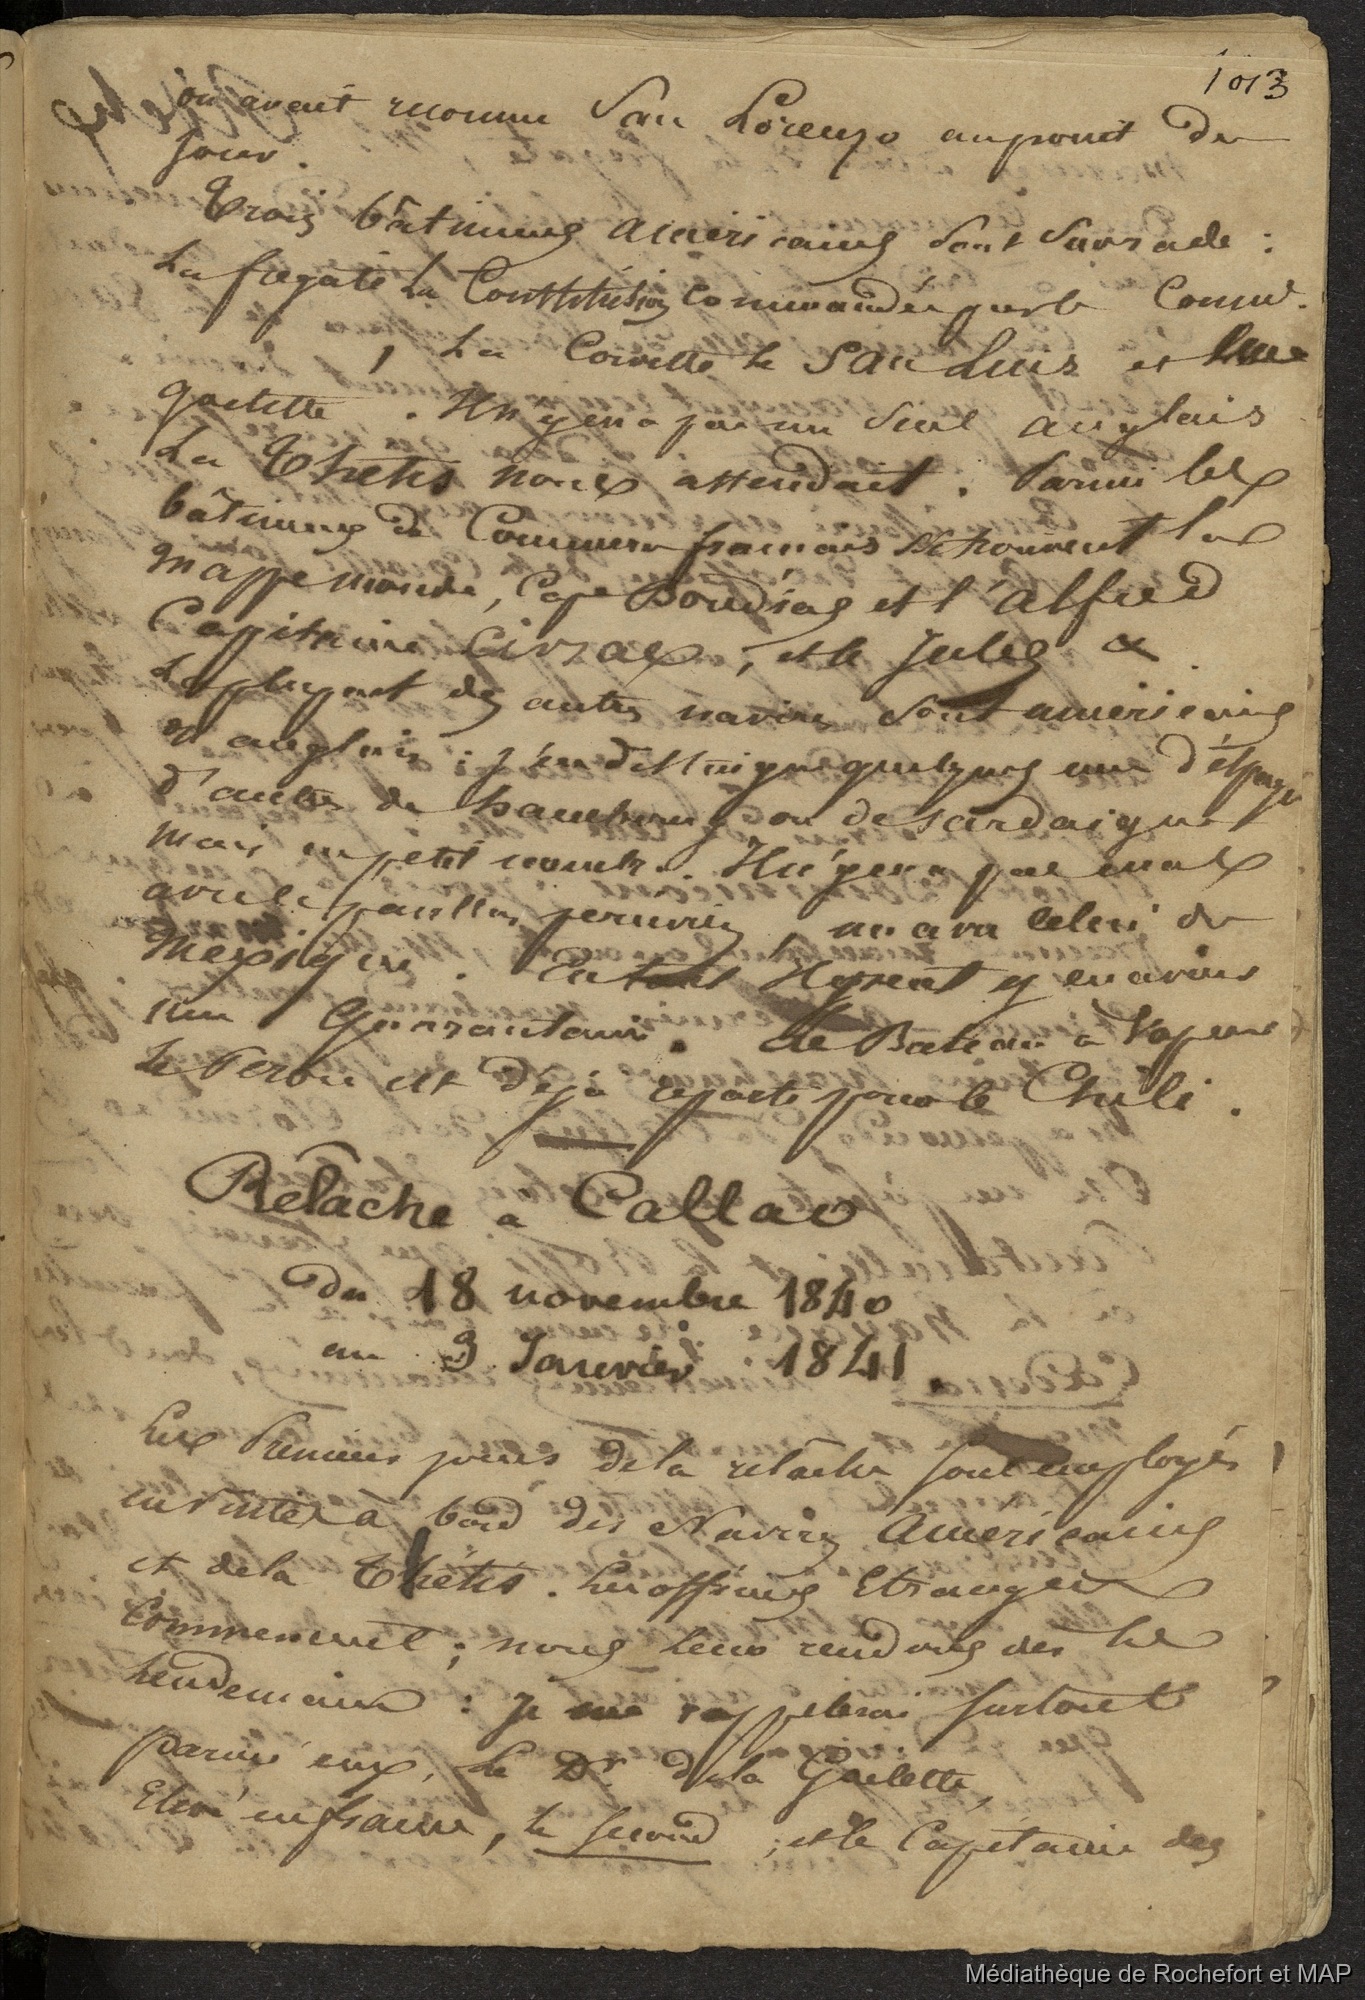 1013
on avait reconnu San Lorenzo au point du
jour.
Trois bâtimens américains sont sur rade :
La fregate la Constitution commandée par le Comm.
, La Corvette le San Luis et une
goelette . Il n'y en a pas un seul anglais
La Thétis nous attendait . Parmi les
bâtimens de Commerce francais se trouvent la
Mappemonde, Cape et l'Alfred
Capitaine , et le Jules &
La plupart des autres navires sont américains
et anglais ; j'en distingue quelques uns d'espagne
d'autres de hambourg ou de sardaigne
mais en petit nombre. Il n'y en a pas mal
avec le pavillon peruvien , un avec celui du
Mexique . y en avons
une Quarantaine . Le Bateau à Vapeur
le Perou est déjà reparti pour le Chili .
Relâche a Callao
du 18 novembre 1840
au 3 Janvier 1841
Les Premiers jours de la relâche sont employés
en visites à bord des Navires Américains
et de la Thétis . Les officiers Etrangers
Commencent ; nous leur rendons dès le
lendemain : Je me rappelerai surtout
parmi eux, Le Dr. de la Goelette,
Elevé en france, le second , et le Capitaine des
Médiathèque de Rochefort et MAP